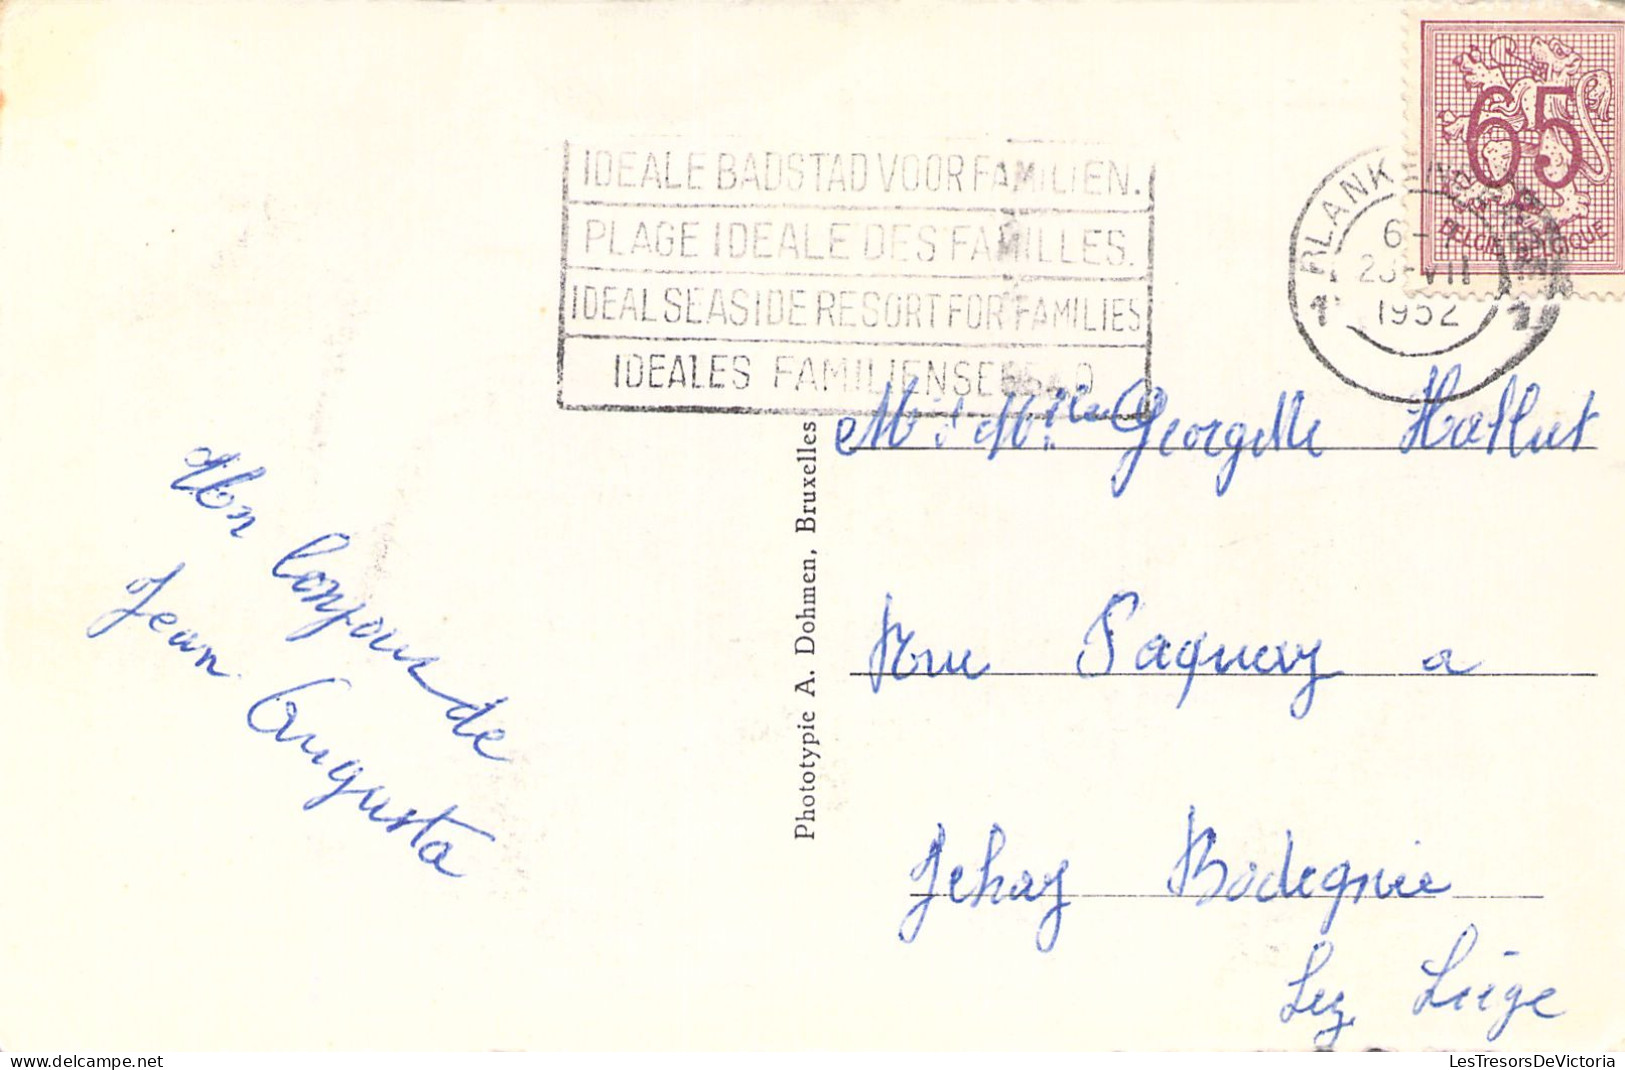 IDEALE BADSTAD VOOR FAMILIEN.
PLAGE IDEALE DES FAMILLES.
IDEAL SEASIDE RESORT FOR FAMILIES
IDEALES FAMILIENSEEBAD
65
BELGIE-BELGIQUE
BLANKENBERGE
6-
VII
1952
1
1
Un bonjour de
Jean. Augusta
Phototypie A. Dohmen, Bruxelles
Mr et Mlle Georgette Hallut
Rue Paquay a
Jehay Bodegnée
Lez Liège
LesTresorsDeVictoria